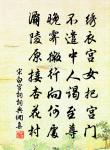 绣衣宫女把宫门
不道中人谒至尊
晚霁猟行何处广
灞陵原接杏花村
宋白宫词 词典网集